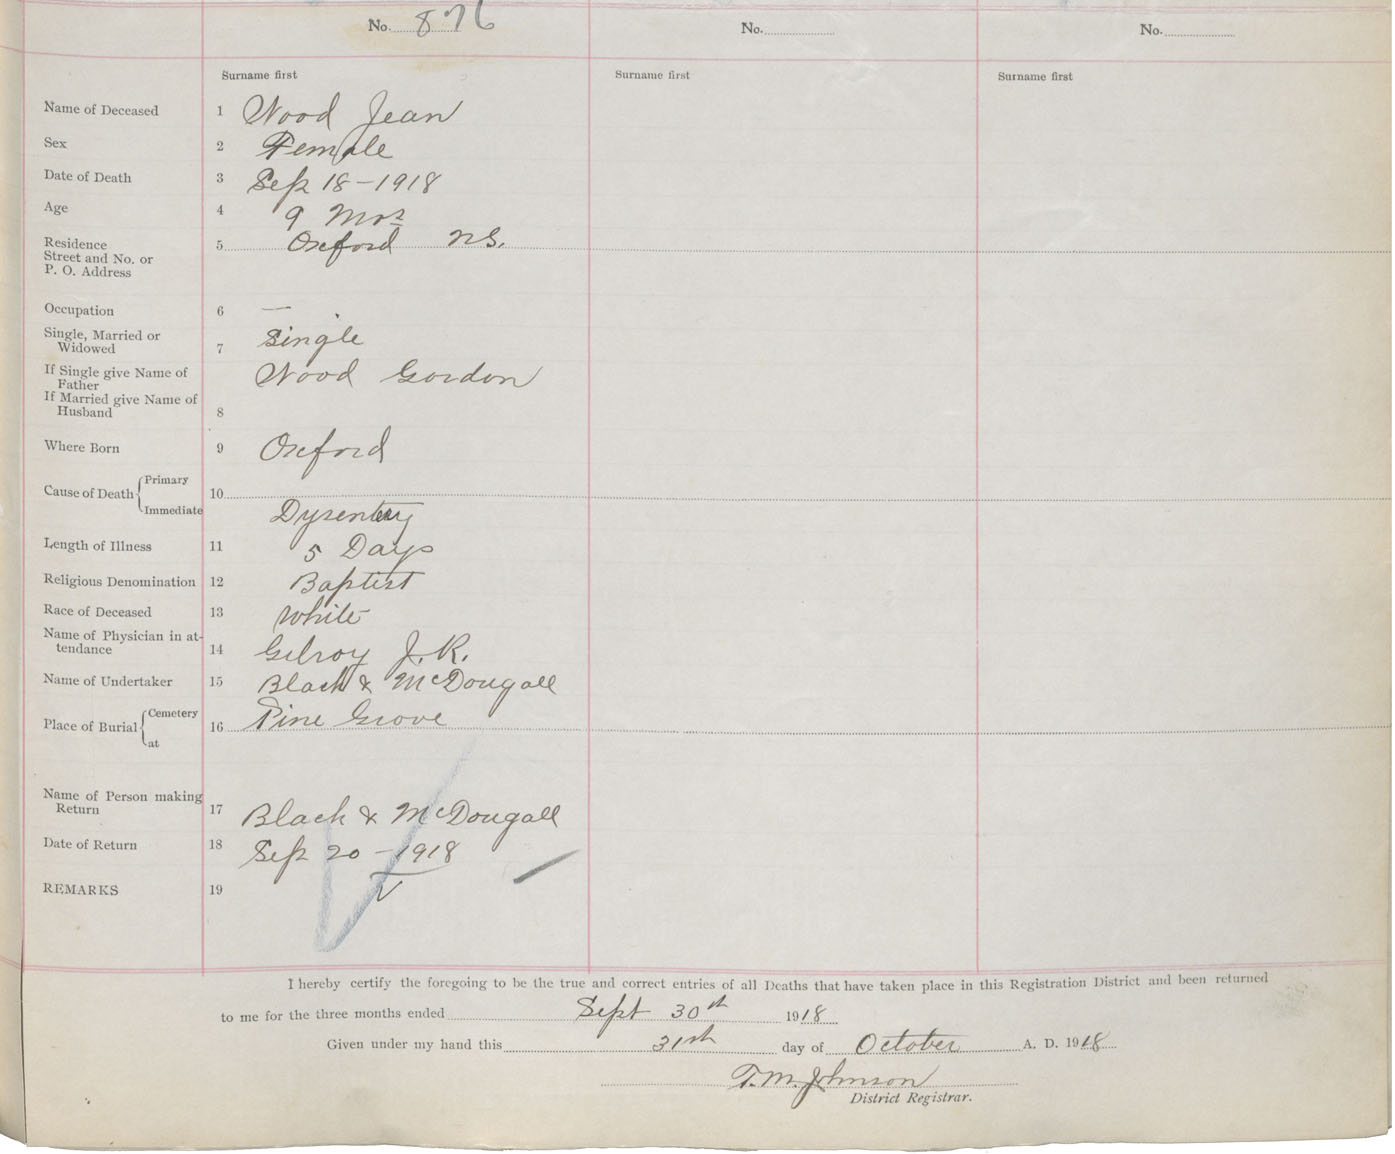 No. 876 No. No.
Surname first Surname first Surname first
Name of Deceased 1 Wood Jean
Sex 2 Female
Date of Death 3 Sept 18-1918
Age 4 9 Mos
Residence 5 Oxford N.S.
Street and No. or
P. O. Address
Occupation 6 —
Single, Married or
Widowed 7 Single
If Single give Name of
Father Wood Gordon
If Married give Name of
Husband 8
Where Born 9 Oxford
Cause of Death Primary 10
Immediate Dysentery
Length of Illness 11 5 Days
Religious Denomination 12 Baptist
Race of Deceased 13 White
Name of Physician in at-
tendance 14 Gilroy J.R.
Name of Undertaker 15 Black & McDougall
Place of Burial Cemetery 16 Pine Grove
at
Name of Person making
Return 17 Black & McDougall
Date of Return 18 Sept 20-1918
REMARKS 19
I hereby certify the foregoing to be the true and correct entries of all Deaths that have taken place in this Registration District and been returned
to me for the three months ended Sept 30th 1918
Given under my hand this 31st day of October A. D. 1918
T.M. Johnson
District Registrar.